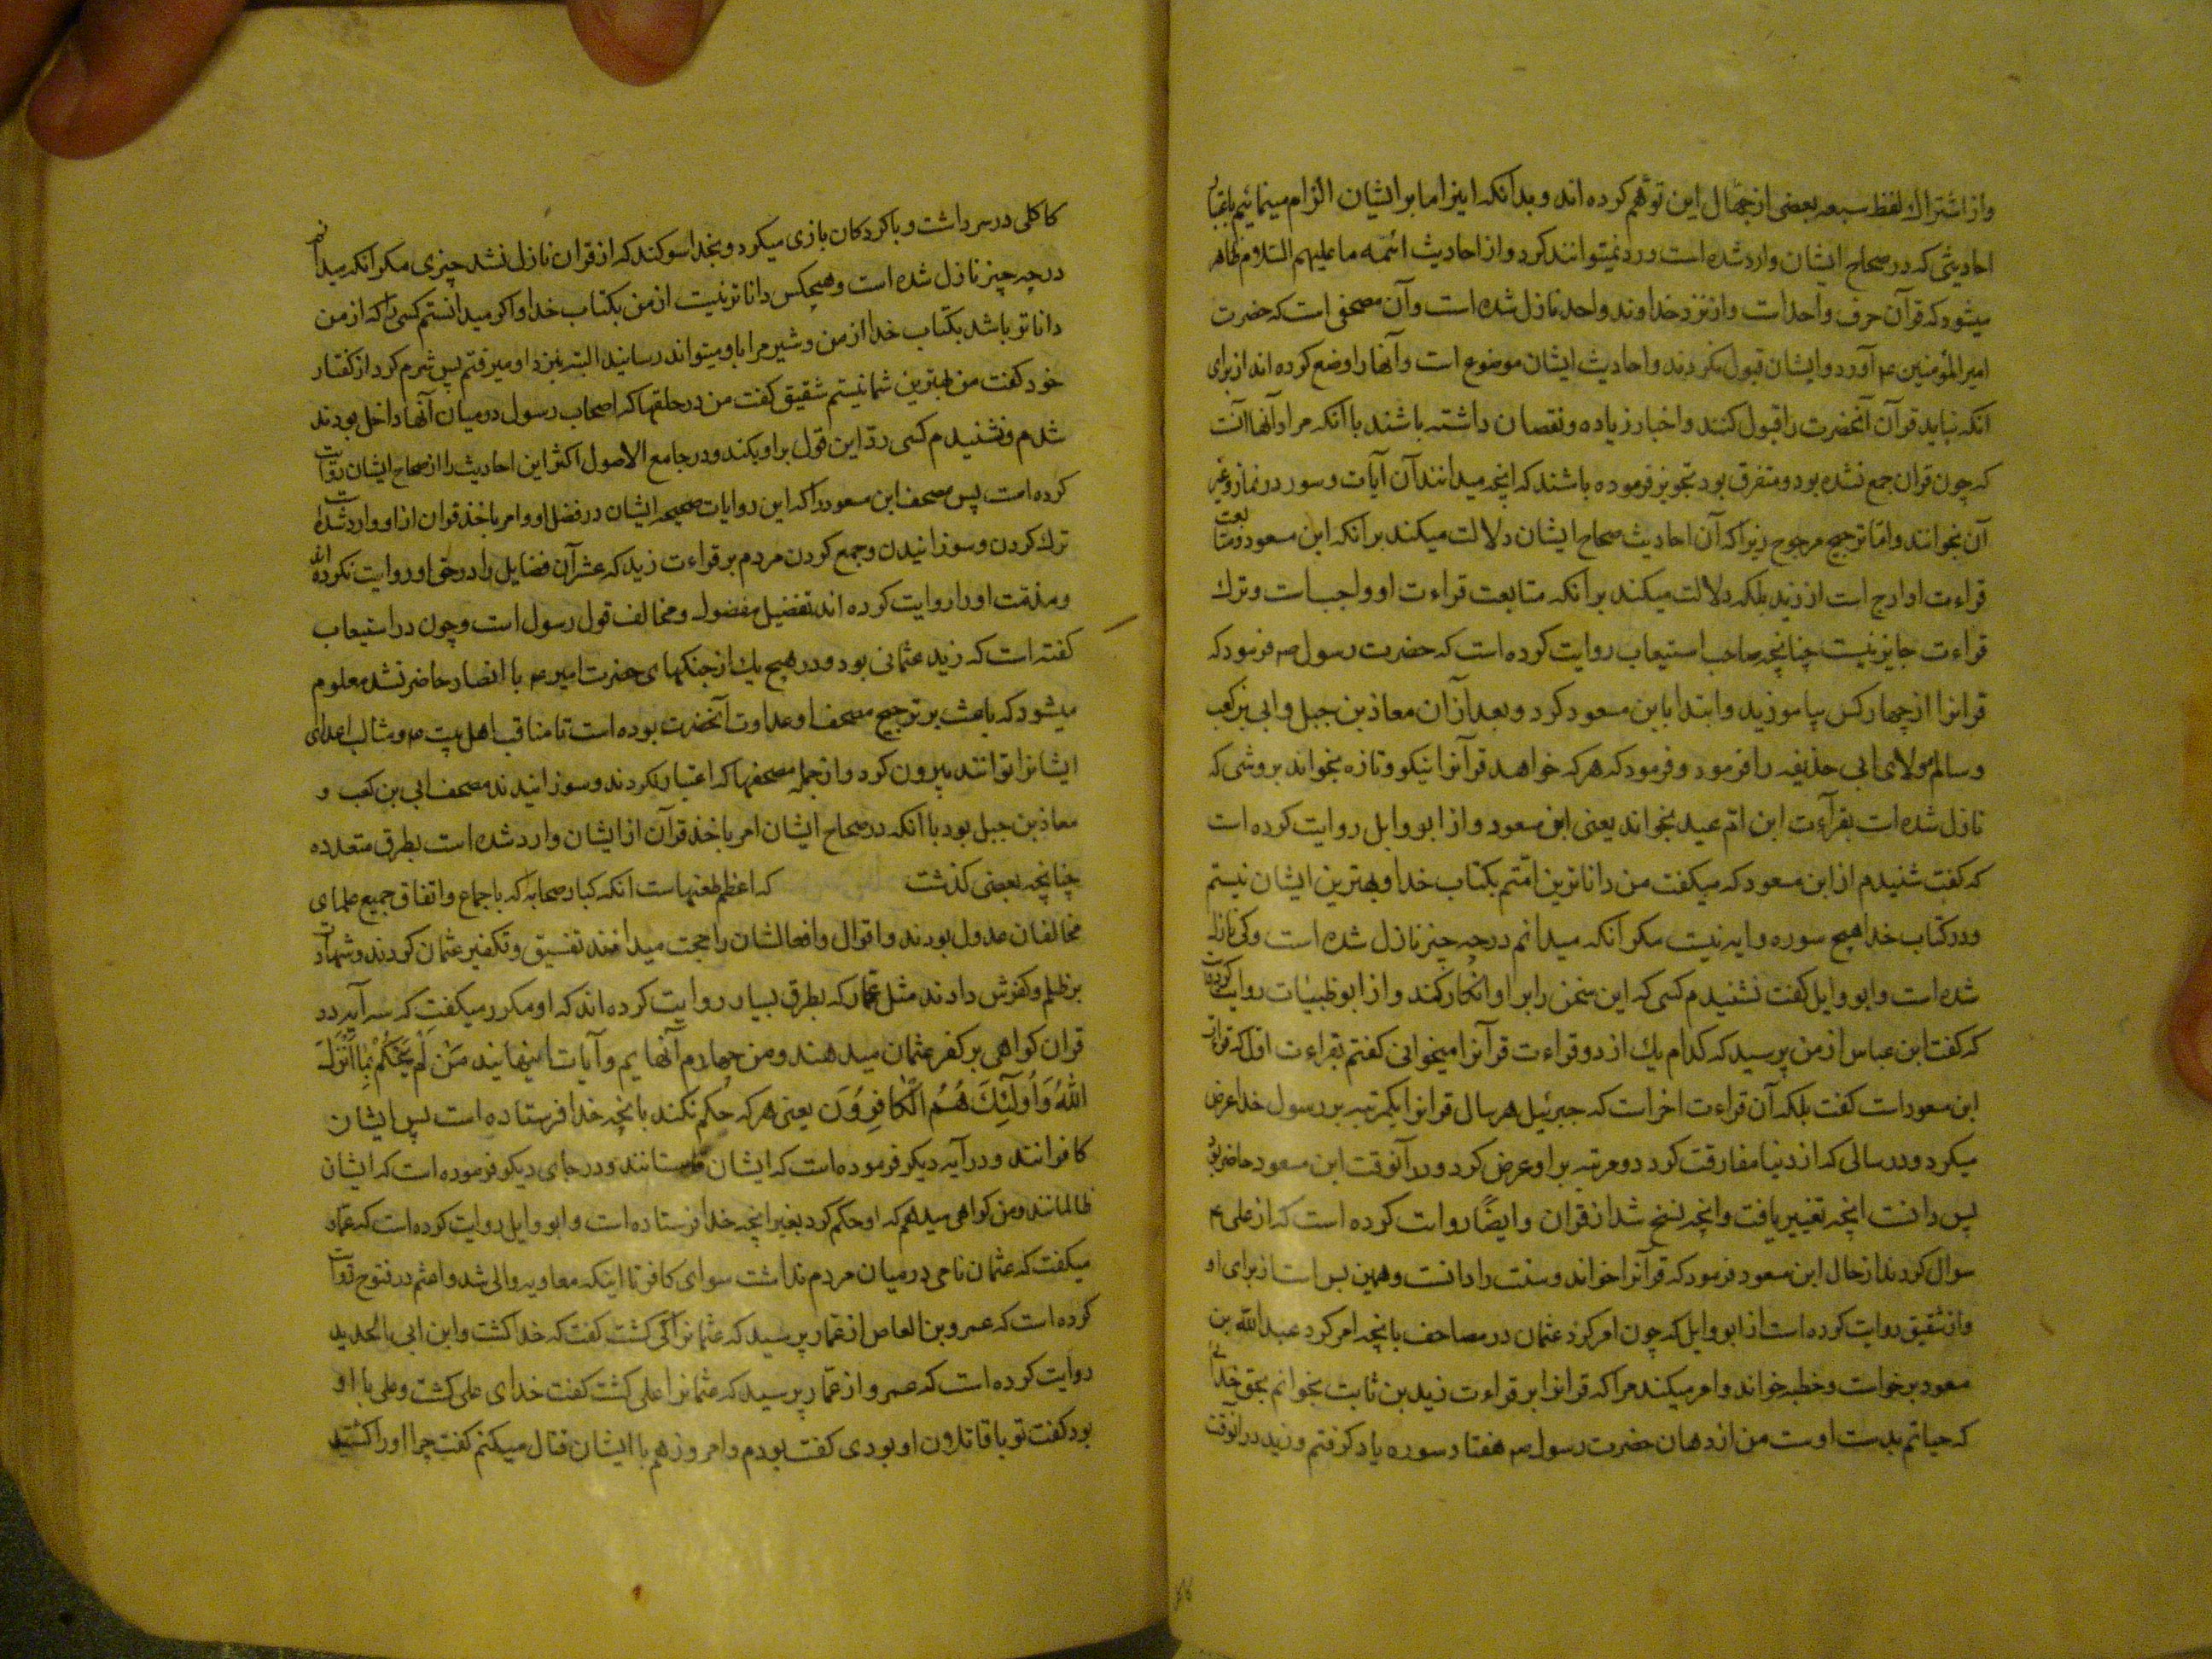 واز اشتراك لفظ سبعه بعضی از جهّال این توهّم کرده اند و بدانکه اینرا ما بر ایشان الزام مینمائیم باعتبار
احادیثی که در صحاح ایشان وارد شده است ورد نمیتوانند کرد و از احادیث ائمّه ما علیهم السّلام ظاهر
میشود که قرآن حرف واحد است و از نزد خداوند واحد نازل شده است وآن مصحفی است که حضرت
امیر المؤمنین ع آورد و ایشان قبول نکردند و احادیث ایشان موضوع است وآنها را وضع کرده اند از برای
انکه نباید قرآن آنحضرت را قبول کنند و اخبار زیاده و نقصان داشته باشند با انکه مراد آنها آنست
که چون قران جمع نشده بود و متفرق بود تجویز فرموده باشند که انچه میدانند آن آیات و سور در نماز وغیر
آن بخوانند وامّا ترجیح مرجوح زیرا که آن احادیث صحاح ایشان دلالت میکند بر انکه ابن مسعود ومتابعت
قراءت او ارجح است از زید بلکه دلالت میکند بر انکه متابعت قراءت او واجبست و ترك
قراءت جایز نیست چنانچه صاحب استیعاب روایت کرده است که حضرت رسول ص فرمود که
قرانرا از چهار کس بیاموزید و ابتدا بابن مسعود کرد و بعد از ان معاذ بن جبل و ابی بن کعب
و سالم مولای ابی حذیفه را فرمود و فرمود که هر که خواهد قرآنرا نیکو و تازه بخواند بروشی که
نازل شده است بقرآءت ابن امّ عبد بخواند یعنی ابن مسعود و از ابو وایل روایت کرده است
که گفت شنیدم از ابن مسعود که میکفت من داناترین امّتم بکتاب خدا و بهترین ایشان نیستم
و در کتاب خدا هیچ سوره وایه نیست مکر آنکه میدانم در چه چیز نازل شده است وکی نازل
شده است وابو وایل کفت نشنیدم کسی که این سخن را بر او انکار کند و از ابو ظبیان روایت کرده‌اند
که کفت ابن عباس از من پرسید که کدام یك از دو قراءت قرآنرا میخوانی کفتم قراءت اوّل که قراءت
ابن مسعود است کفت بلکه آن قراءت اخر است که جبرئیل هر سال قرانرا یکمرتبه بر رسول خدا عرض
میکرد و در سالی که از دنیا مفارقت کرد دو مرتبه بر او عرض کرد و در آنوقت ابن مسعود حاضر بود
پس دانست انچه تغییر یافت و انچه نسخ شد از قران و ایضًا روایت کرده است که از علی ع
سوال کردند از حال ابن مسعود فرمود که قرآنرا خواند و سنت را دانست و همین بس است از برای او
و از شقیق روایت کرده است از ابو وایل که چون امر کرد عثمان در مصاحف بانچه امر کرد عبد الله بن
مسعود برخواست و خطبه خواند و امر میکند مرا که قرانرا بر قراءت زید بن ثابت بخوانم بحق خدائی
که حیاتم بدست اوست من از دهان حضرت رسول ص هفتاد سوره یاد کرفتم و زید در آنوقت
کاکلی در سر داشت و با کودکان بازی میکرد و بخدا سوکند که از قران نازل نشد چیزی مکر انکه میدانم
در چه چیز نازل شده است وهیچکس داناتر نیست از من بکتاب خدا و اکر میدانستم کسی را که از من
داناتر باشد بکتاب خدا از من و شیر مرا باو میتواند رسانید البته بنزد او میرفتم پس شرم کرد از کفتار
خود کفت من بهترین شما نیستم شقیق کفت من در حلقها که اصحاب رسول در میان آنها داخل بودند
شدم و نشنیدم کسی ردّ این قول بر او بکند و در جامع الاصول اکثر این احادیث را از صحاح ایشان روایت
کرده است پس مصحف ابن مسعود را که این روایات صحیحه ایشان در فضل او و امر باخذ قران از او وارد شده است
ترك کردن و سوزانیدن و جمع کردن مردم بر قراءت زید که عشر آن فضایل را در حق او روایت نکرده اند
و مذمّت او را روایت کرده اند تفضیل مفضول و مخالف قول رسول است و چون در استیعاب
کفته است که زید عثمانی بود و در هیچ یك از جنکهای حضرت امیر ع با انصار حاضر نشد معلوم
میشود که باعث بر ترجیح مصحف او عداوت آنحضرت بوده است تا مناقب اهل بیت ع و مثالب اعدای
ایشانرا توانند بیرون کرد و از جمله مصحفها که اعتبار نکردند و سوزانیدند مصحف ابی بن کعب و
معاذ بن جبل بود با انکه در صحاح ایشان امر باخذ قرآن از ایشان وارد شده است بطرق متعدده
چنانچه بعضی کذشت که اعظم طعنهاست انکه کبار صحابه که باجماع و اتفاق جمیع علمای
مخالفان عدول بودند و اقوال و افعالشان را حجت میدانند تفسیق و تکفیر عثمان کردند و شهادت
بر ظلم و کفرش دادند مثل عمّار که بطرق بسیار روایت کرده اند که او مکرر میکفت که سه آیه در
قران کواهی بر کفر عثمان میدهند و من چهارم آنهایم و آیات اینهایند مَنْ لَمْ یَحْکُمْ بِمَا اَنْزَلَ
اللّٰهُ فَاُولٰٓئِكَ هُمُ الْکَافِرُوْنَ یعنی هر که حکم نکند بانچه خدا فرستاده است پس ایشان
کافرانند و در آیه دیکر فرموده است که ایشان فاسقانند و در جای دیکر فرموده است که ایشان
ظالمانند و من کواهی میدهم که او حکم کرد بغیر انچه خدا فرستاده است و ابو وایل روایت کرده است که عمّار
میکفت که عثمان نامی در میان مردم نداشت سوای کافر تا اینکه معاویه والی شد و اعثم در فتوح روایت
کرده است که عمرو بن العاص از عمّار پرسید که عثمانرا کی کشت کفت که خدا کشت و ابن ابی الحدید
روایت کرده است که عمرو از عمّار پرسید که عثمانرا علی کشت کفت خدای علی کشت و علی با او
بود کفت تو با قاتلان او بودی کفت بودم و امروز هم با ایشان قتال میکنم کفت چرا او را کشتید